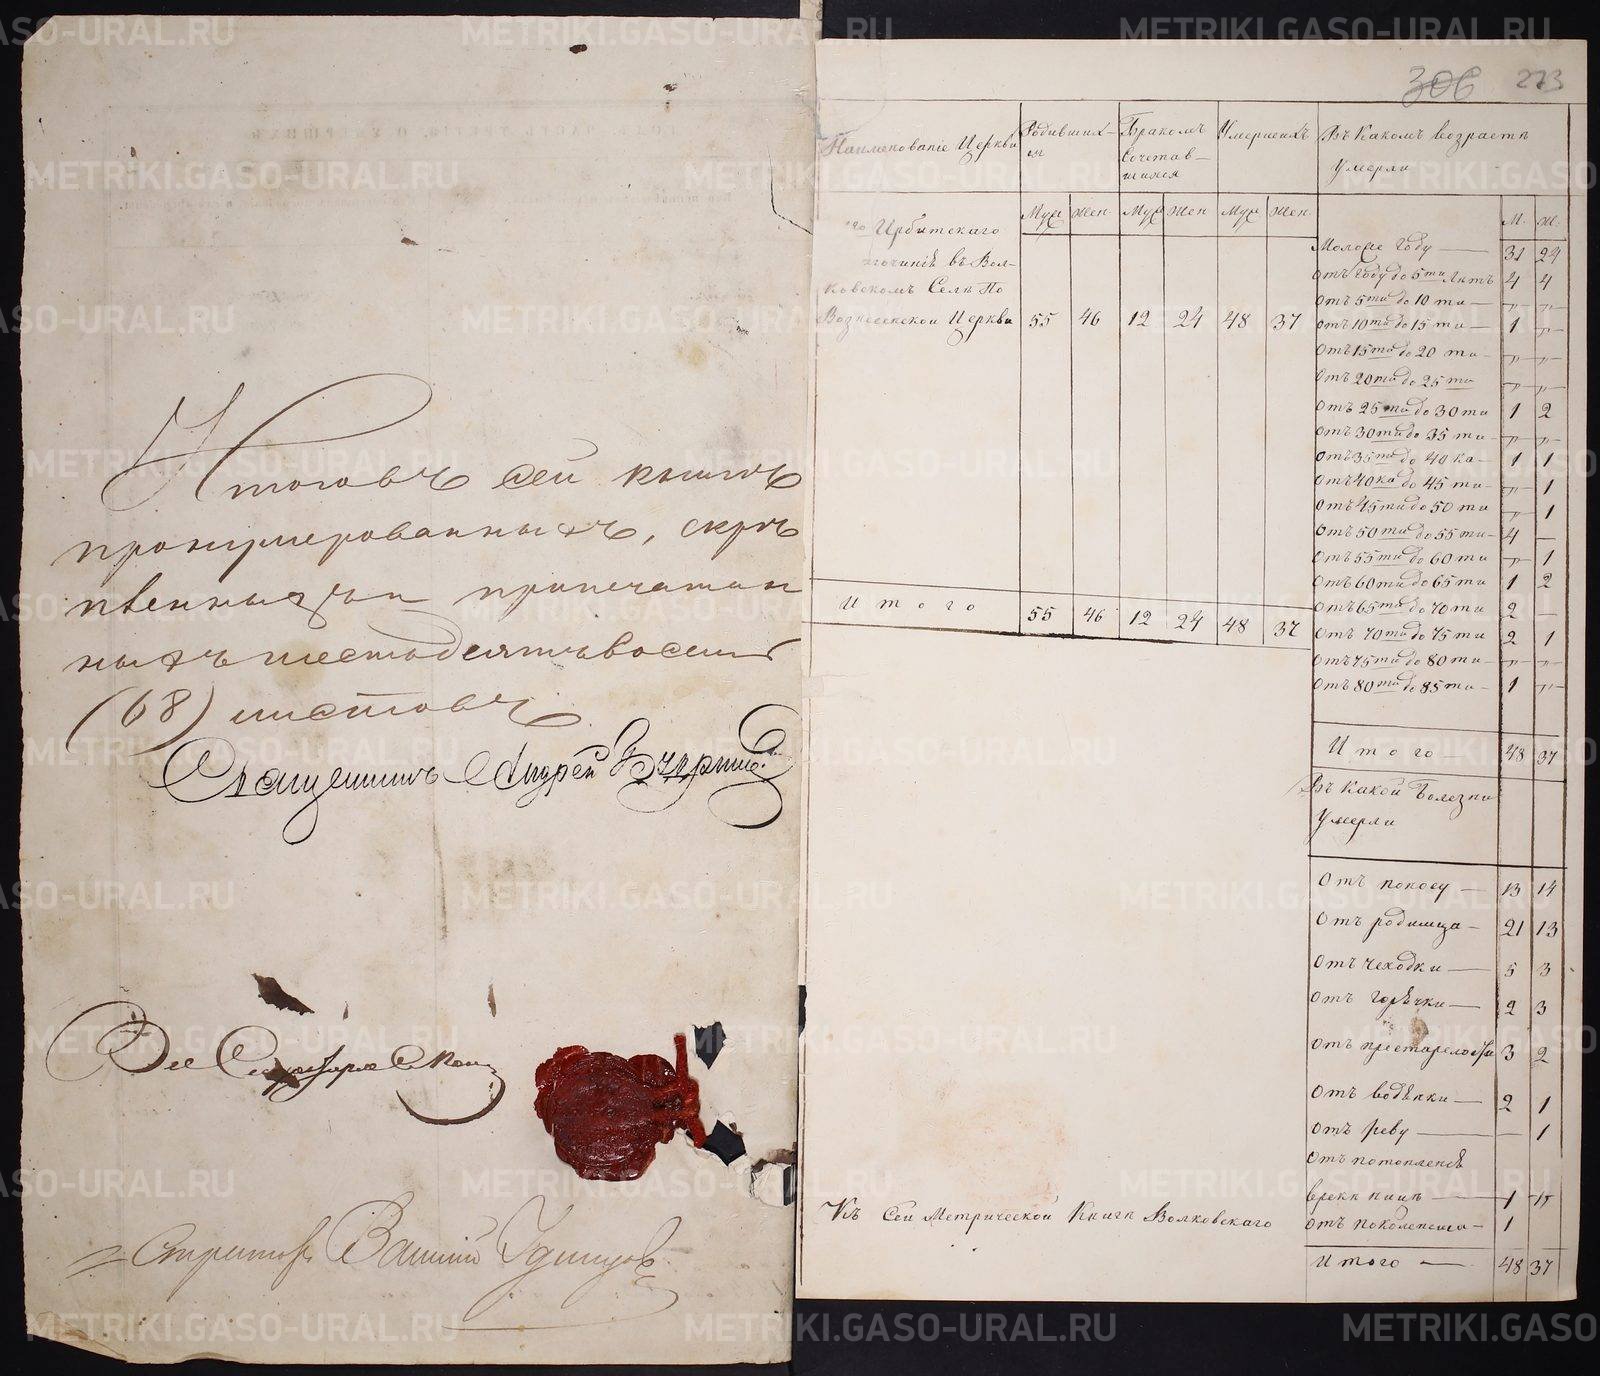 Итого въ сей книгѣ
пронумерованныхъ, скрѣ
пленныхъ и припечатан
ныхъ шестьдесятъ восемь
(68) листовъ
Священникъ Андрей
Василий
306 273
Наименованіе Церкви
Родивших-
ся
Бракомъ
Сочетав-
шихся
Умершихъ
Въ Какомъ возрастѣ
Умерли
Муж Жен Муж Жен Муж Жен
М. Ж.
Ирбитскаго
въ Вол-
ковскомъ Селѣ По
Вознесенской Церкви 55 46 12 24 48 37
Моложе году — 31 24
Отъ году до 5ти Лѣтъ 4 4
Отъ 5ти до 10ти — „ „
Отъ 10ти до 15ти — 1 „
Отъ 15ти до 20ти — „ „
Отъ 20ти до 25ти „ „
Отъ 25ти до 30ти 1 2
Отъ 30ти до 35ти — „ „
Отъ 35ти до 40ка — 1 1
Отъ 40ка до 45ти — „ 1
Отъ 45ти до 50ти „ 1
Отъ 50ти до 55ти — 4 —
Отъ 55ти до 60ти „ 1
Отъ 60ти до 65ти 1 2
Отъ 65ти до 70ти 2 —
Отъ 70ти до 75ти 2 1
Отъ 75ти до 80ти — „ „
Отъ 80ти до 85ти — 1 „
Итого 55 46 12 24 48 37
Итого — 48 37
Въ Какой Болезни
Умерли
Отъ поносу — 13 14
Отъ родимца — 21 13
Отъ чеходки — 5 3
Отъ горѣчки — 2 3
Отъ престарелости 3 2
Отъ водѣнки — 2 1
Отъ реву — — 1
Отъ потопленія
врекѣ — 1 „
Отъ — 1
Итого — 48 37
Къ Сей Метрической Книгѣ Волковскаго